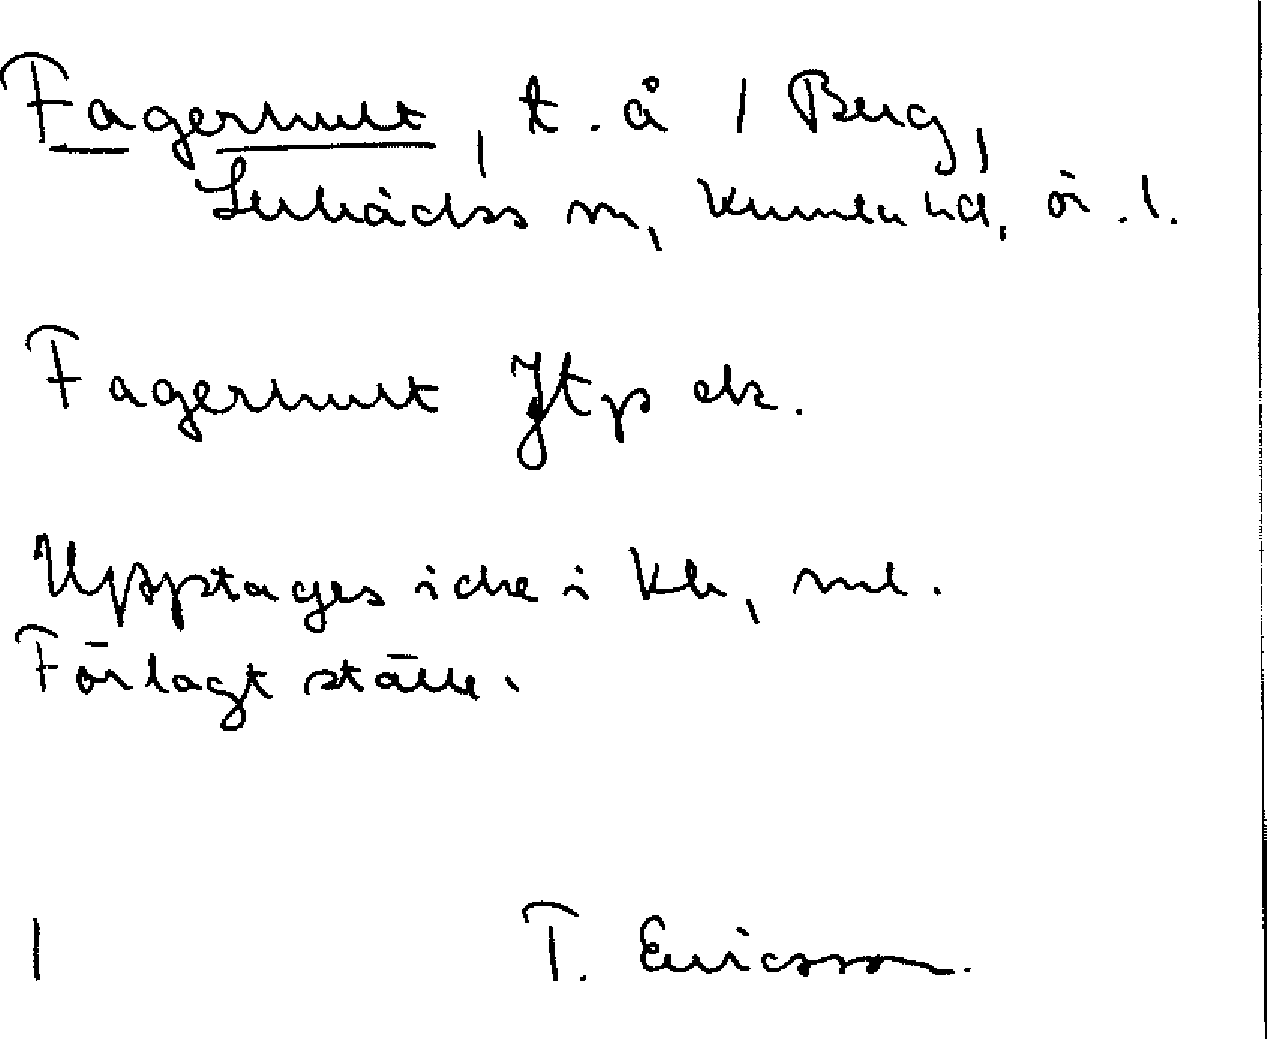 Fagerhult, t. å 1 Berg,
Lerbäcks sn, Kumla hd, ör. l.
Fagerhult Jtp ek.
Upptages icke i kb, ml.
Förlagt ställe.
1 T. Ericsson.